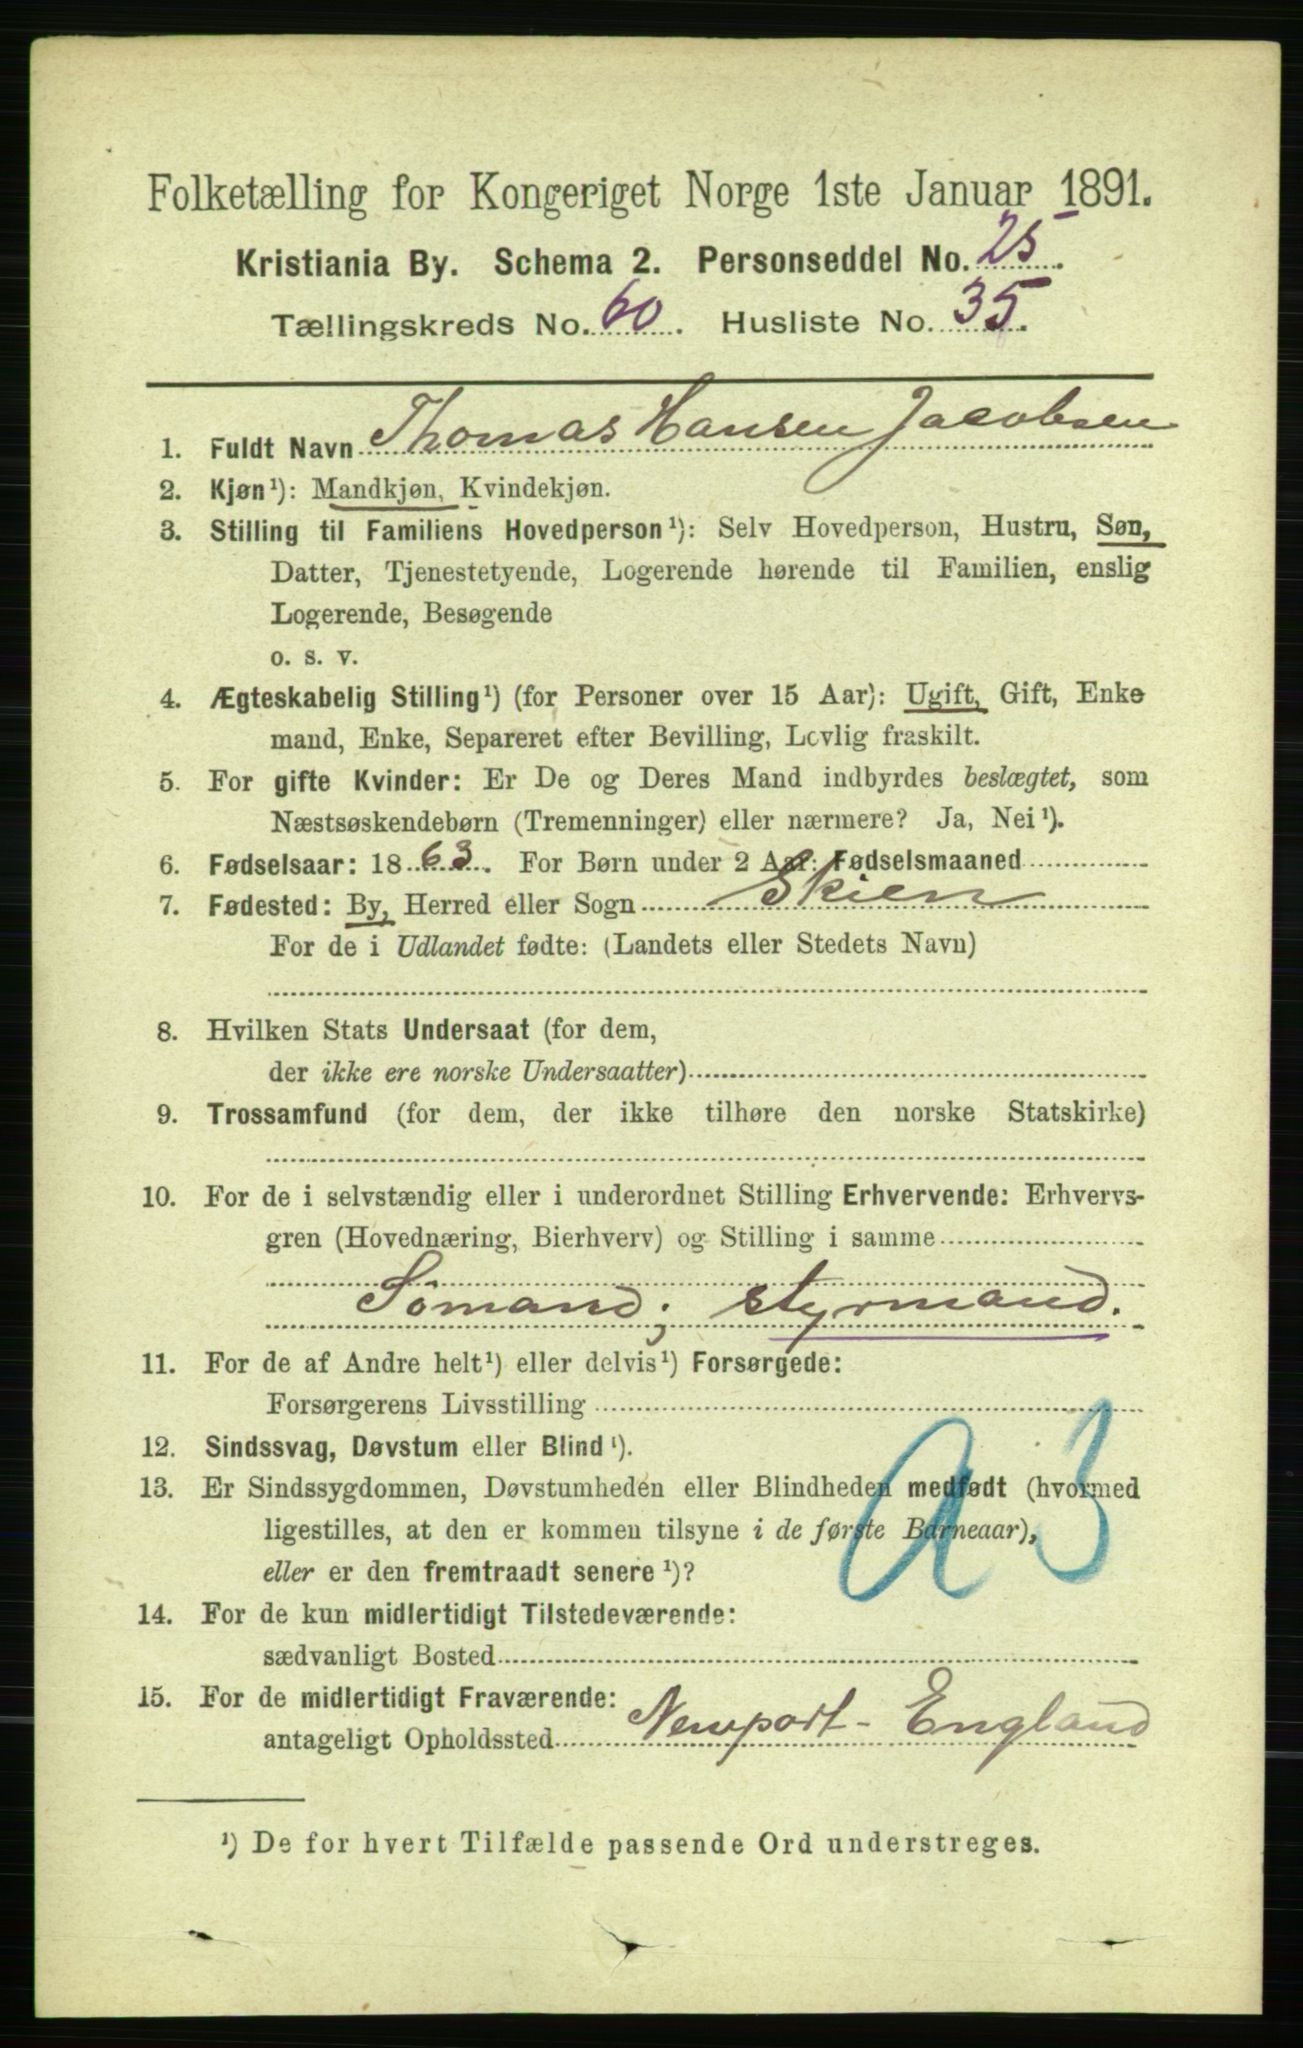 Folketælling for Kongeriget Norge 1ste Januar 1891.
Kristiania By. Schema 2. Personseddel No. 25.
Tællingskreds No. 60. Husliste No. 35.
1. Fuldt Navn Thomas Hansen Jacobsen
2. Kjøn¹): Mandkjøn, Kvindekjøn.
3. Stilling til Familiens Hovedperson¹): Selv Hovedperson, Hustru, Søn,
Datter, Tjenestetyende, Logerende hørende til Familien, enslig
Logerende, Besøgende
o. s. v.
4. Ægteskabelig Stilling¹) (for Personer over 15 Aar): Ugift, Gift, Enke
mand, Enke, Separeret efter Bevilling, Lovlig fraskilt.
5. For gifte Kvinder: Er De og Deres Mand indbyrdes beslægtet, som
Næstsøskendebørn (Tremenninger) eller nærmere? Ja, Nei¹).
6. Fødselsaar: 1863. For Børn under 2 Aar: Fødselsmaaned
7. Fødested: By, Herred eller Sogn Skien
For de i Udlandet fødte: (Landets eller Stedets Navn)
8. Hvilken Stats Undersaat (for dem,
der ikke ere norske Undersaatter)
9. Trossamfund (for dem, der ikke tilhøre den norske Statskirke)
10. For de i selvstændig eller i underordnet Stilling Erhvervende: Erhvervs-
gren (Hovednæring, Bierhverv) og Stilling i samme
Sömand; styrmand.
11. For de af Andre helt¹) eller delvis¹) Forsørgede:
Forsørgerens Livsstilling
12. Sindssvag, Døvstum eller Blind¹).
13. Er Sindssygdommen, Døvstumheden eller Blindheden medfødt (hvormed
ligestilles, at den er kommen tilsyne i de første Barneaar),
eller er den fremtraadt senere¹)?
a 3
14. For de kun midlertidigt Tilstedeværende:
sædvanligt Bosted
15. For de midlertidigt Fraværende:
antageligt Opholdssted Newport - England
¹) De for hvert Tilfælde passende Ord understreges.